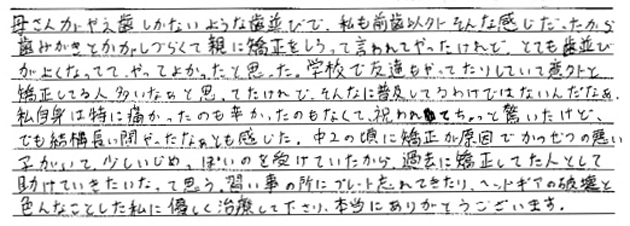 母さんがやえ歯しかないような歯並びで、私も前歯以外そんな感じだったから
歯みがきとかがしづらくて親に矯正をしろって言われてやったけれど、とても歯並び
がよくなってて、やってよかったと思った。学校で友達もやってたりしていて意外と
矯正してる人多いなぁと思ってたけれど、そんなに普及してるわけではないんだなぁ。
私自身は特に痛かったのも辛かったのもなくて、祝われてちょっと驚いたけど、
でも結構長い間やったなぁとも感じた。中2の頃に矯正が原因でかつぜつの悪い
子がいて、少しいじめっぽいのを受けていたから、過去に矯正してた人として
助けていきたいなって思う。習い事の所にプレート忘れてきたり、ヘッドギアの破壊と
色んなことした私に優しく治療して下さり、本当にありがとうございます。